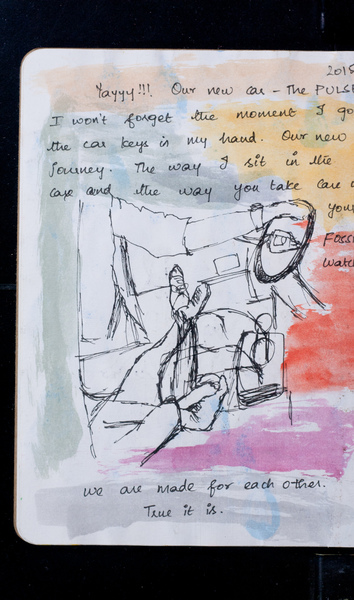 2015
Yayyy!!! Our new car - The PULSE
I won't forget the moment I go
the car keys in my hand. Our new
Journey. The way I sit in the
car and the way you take care o
your
Fossi
Watch
we are made for each other.
True it is.